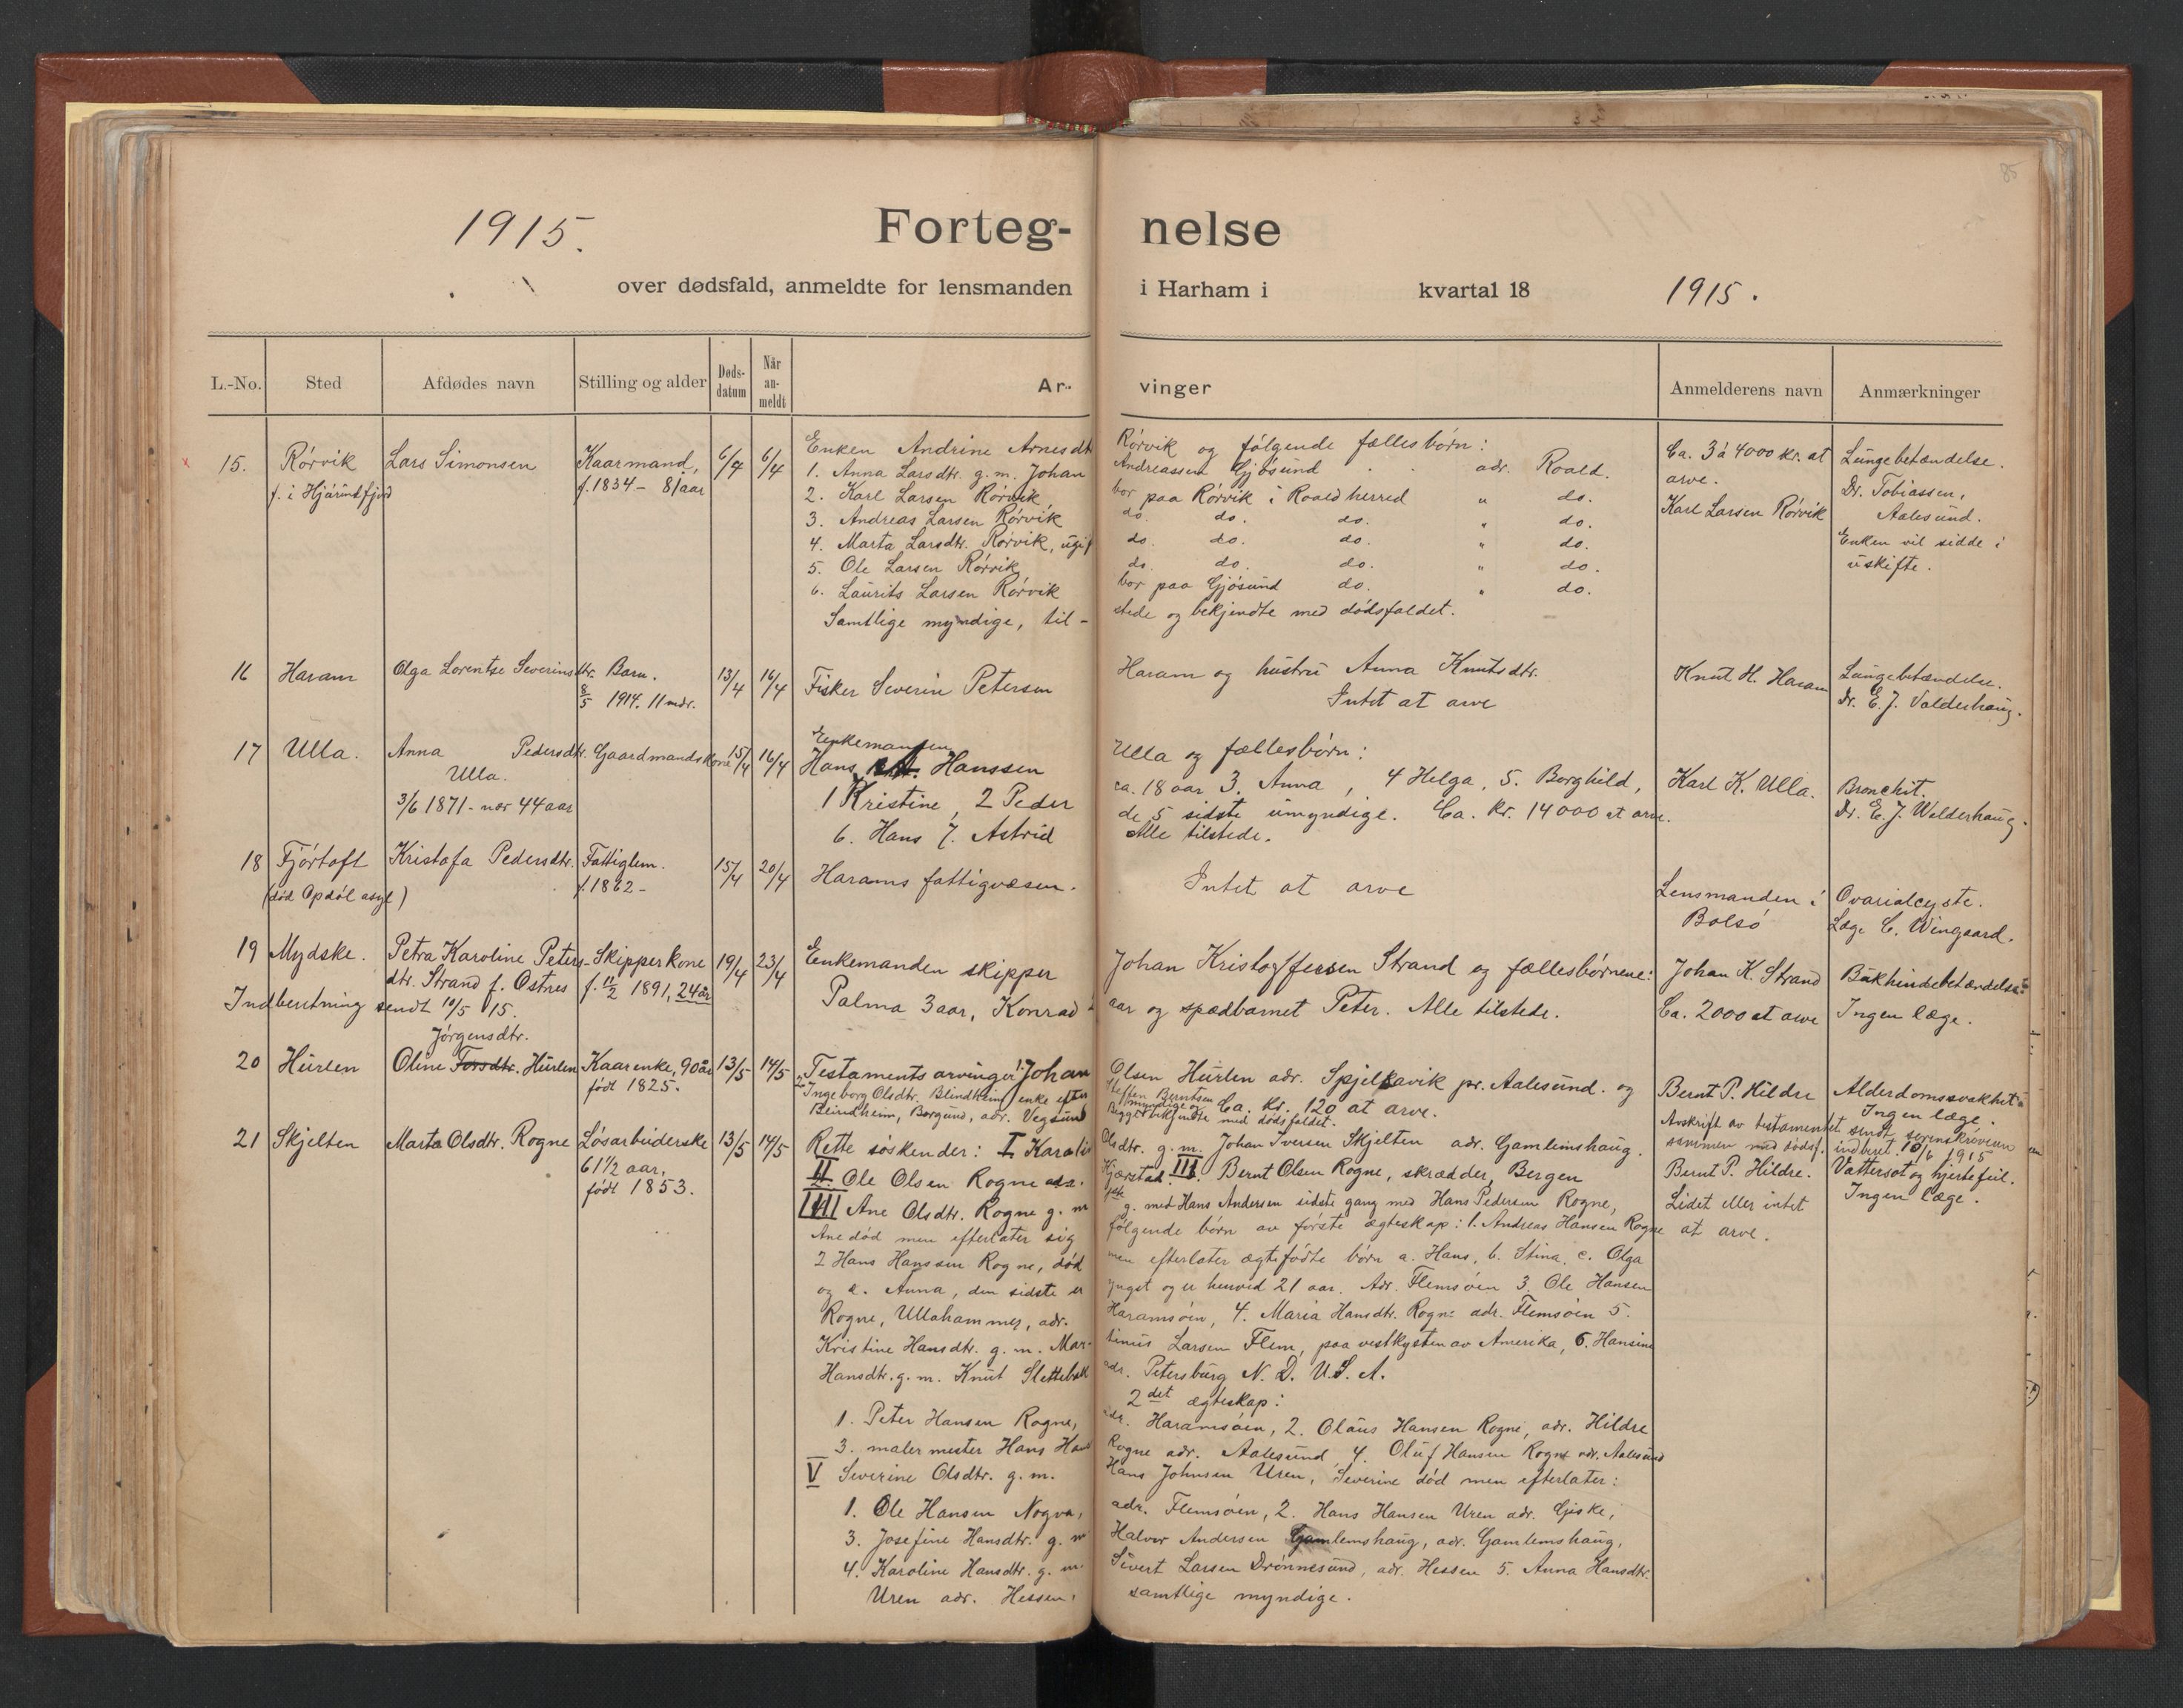 85
1915. Forteg- nelse
over dødsfald, anmeldte for lensmanden i Harham i kvartal 18 1915.
L.-No. Sted Afdødes navn Stilling og alder Døds-datum Når an-meldt Ar- vinger Anmelderens navn Anmærkninger
x 15. Rörvik Lars Simonsen Kaarmand, 6/4 6/4 Enken Andrine Arnesdt Rörvik og følgende fælles børn: Ca. 3 à 4000 kr. at Lungebetændelse.
f. i Hjörundfjord f. 1834 - 81 aar 1. Anna Larsdtr. g. m. Johan Andreassen Gjøsund adr. Roald. arve. Dr. Tobiassen,
2. Karl Larsen Rörvik bor paa Rörvik i Roald herred " do. Karl Larsen Rörvik Aalesund.
3. Andreas Larsen Rörvik do. do. do. " do. Enken vil sidde i
4. Marta Larsdtr. Rörvik, ugif do. do. do. " do. uskifte.
5. Ole Larsen Rörvik do. do. do. " do.
6. Laurits Larsen Rörvik bor paa Gjøsund do. " do.
Samtlige myndige, til- stede og bekjendte med dödsfaldet.
16 Haram Olga Lorentse Severinsdtr. Barn. 13/4 16/4 Fisker Severin Petersen Haram og hustru Anna Knutsdtr. Knut H. Haram Lungebetændelse.
8/5 1914. 11 mdr. Intet at arve Dr. E. J. Valderhaug.
17 Ulla. Anna Pedersdtr. Gaardmandskone 15/4 16/4 Enkemanden
Ulla. Hans Hanssen Ulla og fællesbørn: Karl K. Ulla. Bronchit.
3/6 1871 - nær 44 aar 1 Kristine, 2 Peder ca. 18 aar 3. Anna, 4 Helga, 5. Borghild, Dr. E. J. Walderhaug.
6. Hans 7. Astrid de 5 sidste umyndige. Ca. Kr. 14000 at arve.
Alle tilstede.
18 Fjörtoft Kristofa Pedersdtr. Fattiglem. 15/4 20/4 Harams fattigvæsen. Intet at arve Lensmanden i Ovarialcyste.
(död Opdöl asyl) f. 1862 - Bolsö Læge C. Wingaard.
19 Mydske. Petra Karoline Peters- Skipperkone 19/4 23/4 Enkemanden skipper Johan Kristoffersen Strand og fællesbörnene: Johan K. Strand Bukhindebetændelse.
dtr. Strand f. Östnes f. 11/2 1891, 24 år Palma 3 aar, Konrad 2 aar og spædbarnet Peter. Alle tilstede. Ca. 2000 at arve Ingen læge.
Indberetning sendt 10/5 15.
Jörgensdtr.
20 Hurlen Oline Hurlen Kaarenke, 90 år 13/5 14/5 Testaments arvinger: 1 Johan Olsen Hurlen adr. Spjelkavik pr. Aalesund. og Bernt P. Hildre Alderdomssvakhet
födt 1825. 2 Ingeborg Olsdtr. Blindheim, enke efter Steffen Berntsen Ca. Kr. 120 at arve. Ingen læge.
Blindheim, Borgund, adr. Vegsund Begge myndige og bekjendte med dödsfaldet. Avskrift av testamentet sendt sorenskriveren
21 Skjelten Marta Olsdtr. Rogne Lösarbeiderske 13/5 14/5 Rette söskender: I Karolin Olsdtr. g. m. Johan Iversen Skjelten adr. Gamlemshaug. sammen med dödsf. indberet. 10/6 1915
61 1/2 aar, II Ole Olsen Rogne adr. Kjærstad III Bernt Olsen Rogne, skrædder, Bergen Bernt P. Hildre. Vattersot og hjertefeil.
födt 1853. IIII Ane Olsdtr. Rogne g. m g. med Hans Andersen sidste gang med Hans Pedersen Rogne, Lidet eller intet Ingen læge.
Ane död men efterlater sig fölgende börn av förste ægteskap: 1. Andreas Hansen Rogne at arve.
2 Hans Hanssen Rogne, död men efterlater ægtefödte börn a. Hans, b. Stina, c. Olga
og d. Anna, den sidste er yngst og er henved 21 aar. Adr. Flemsöen 3. Ole Hansen
Rogne, Ullahammer, adr. Haramsöen, 4. Maria Hansdtr. Rogne adr. Flemsöen 5.
Kristine Hansdtr. g. m. Mar- tinus Larsen Flem, paa vestkysten av Amerika, 6. Hansine
Hansdtr. g. m. Knut Slettebak adr. Petersburg N. D. U. S. A.
2det ægteskap:
1. Peter Hansen Rogne, adr. Haramsöen, 2. Olaus Hansen Rogne, adr. Hildre
3. malermester Hans Hans Rogne adr. Aalesund 4. Oluf Hansen Rogne adr. Aalesund
V Severine Olsdtr. g. m. Hans Johnsen Uren, Severine död men efterlater:
1. Ole Hansen Nogva, adr. Flemsöen, 2. Hans Hansen Uren adr. Giske,
3. Josefine Hansdtr. g. m Halvor Andersen Gamlemshaug, adr. Gamlemshaug,
4. Karoline Hansdtr. g. m. Sivert Larsen Drönnesund, adr. Hessen 5. Anna Hansdtr.
Uren adr. Hessen, samtlige myndige.